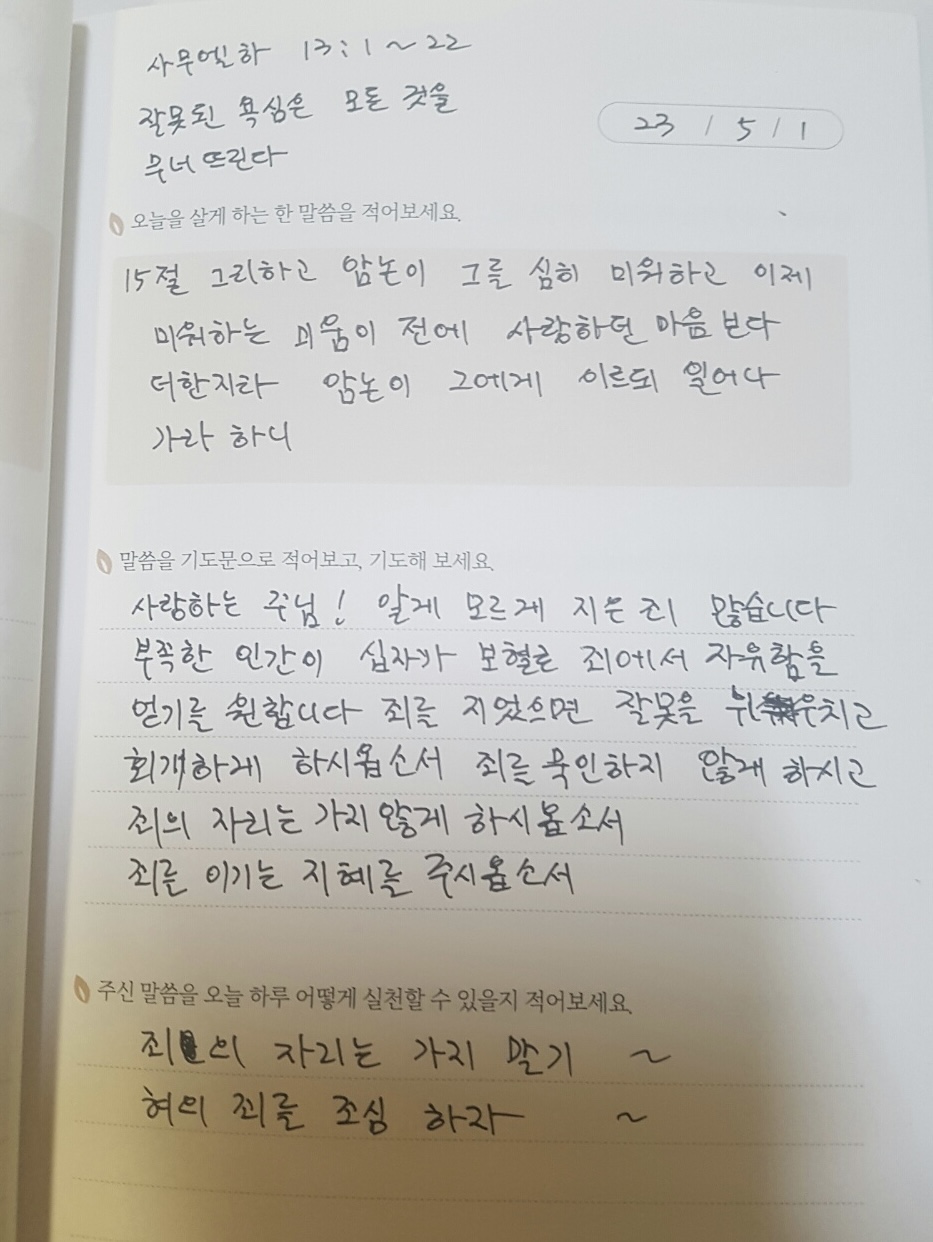 사무엘하 13:1~22
잘못된 욕심은 모든 것을
무너뜨린다
23 / 5 / 1
오늘을 살게 하는 한 말씀을 적어보세요.
15절 그리하고 암논이 그를 심히 미워하고 이제
미워하는 미움이 전에 사랑하던 마음보다
더한지라 암논이 그에게 이르되 일어나
가라 하니
말씀을 기도문으로 적어보고, 기도해 보세요.
사랑하는 주님! 알게 모르게 지은 죄 많습니다
부족한 인간이 십자가 보혈로 죄에서 자유함을
얻기를 원합니다 죄를 지었으면 잘못을 뉘우치고
회개하게 하시옵소서 죄를 묵인하지 않게 하시고
죄의 자리는 가지 않게 하시옵소서
죄를 이기는 지혜를 주시옵소서
주신 말씀을 오늘 하루 어떻게 실천할 수 있을지 적어보세요.
죄의 자리는 가지 말기 ~
혀의 죄를 조심 하자 ~